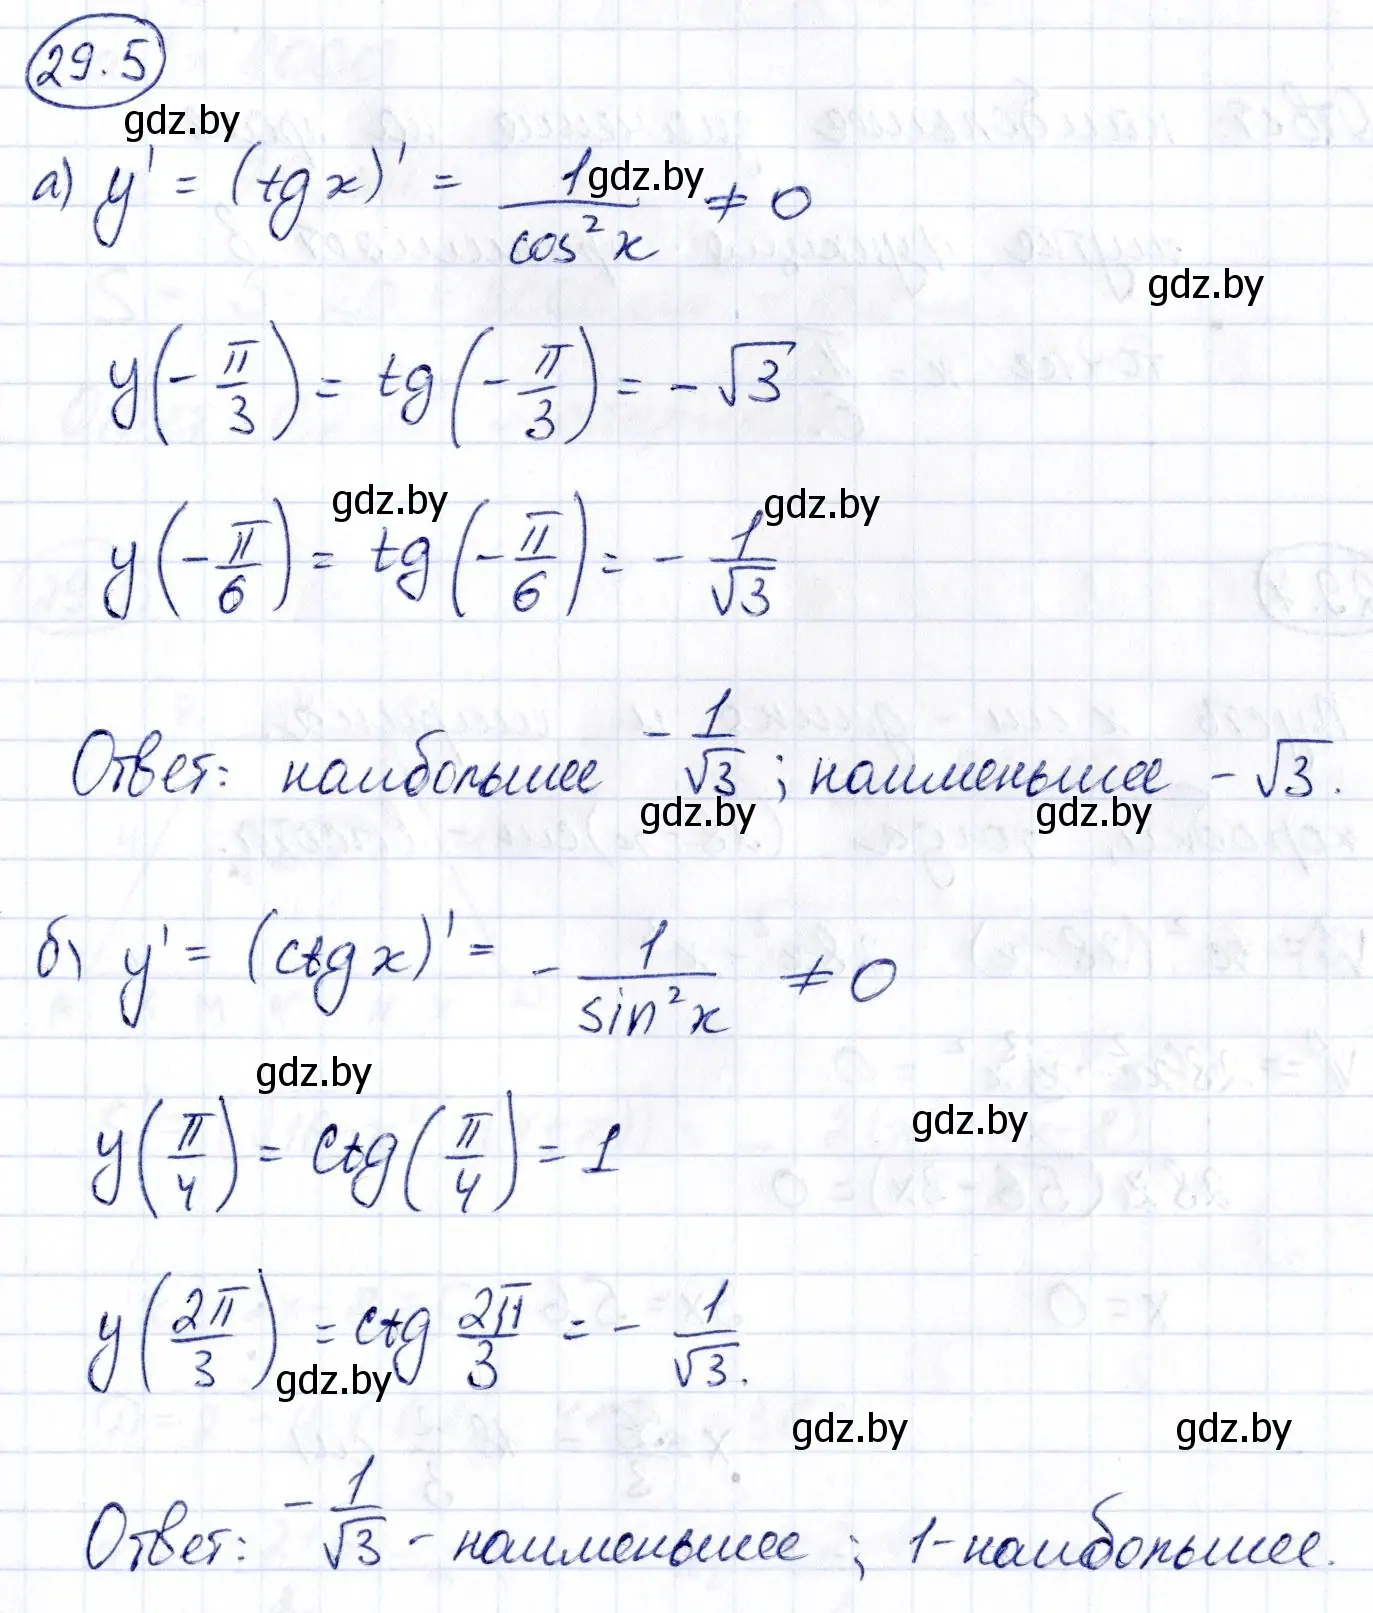 29.5
gdz.by
а) y' = (tg x)' = 1/cos²x ≠ 0
gdz.by
gdz.by
y(-π/3) = tg(-π/3) = -√3
gdz.by gdz.by
y(-π/6) = tg(-π/6) = -1/√3
Ответ: наибольшее -1/√3; наименьшее -√3.
gdz.by gdz.by
б) y' = (ctg x)' = -1/sin²x ≠ 0
gdz.by
gdz.by
y(π/4) = ctg(π/4) = 1
y(2π/3) = ctg 2π/3 = -1/√3.
gdz.by
gdz.by gdz.by
Ответ: -1/√3 - наименьшее; 1-наибольшее.